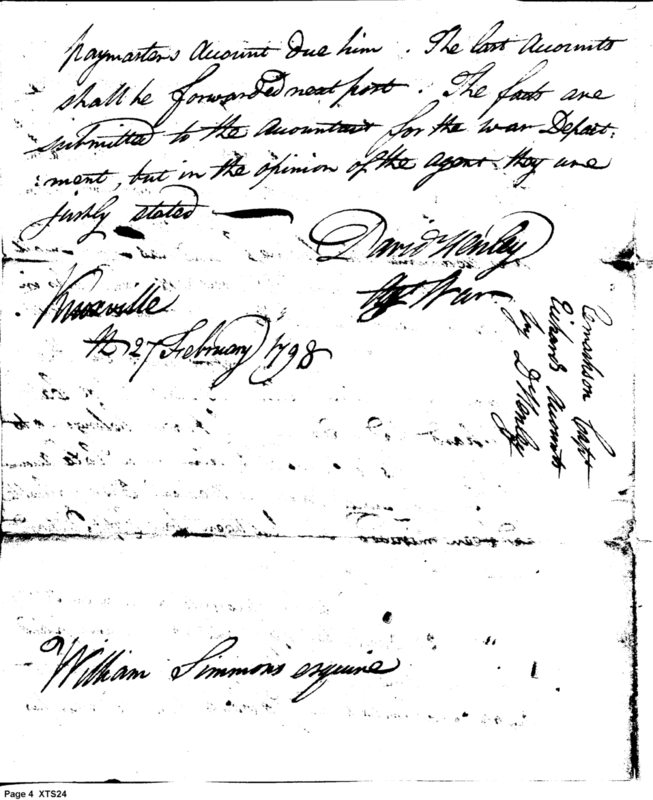 paymasters Account due him . The last Accounts
shall be forwarded next post . The facts are
submitted to the Accountant for the War Depart:
:ment, but in the opinion of the agent they are
justly stated
David Henley
Agt War
Knoxville
27 February 1798
Remarks on Capt
Richards Accounts
by D Henley
William Simmons esquire
Page 4 XTS24